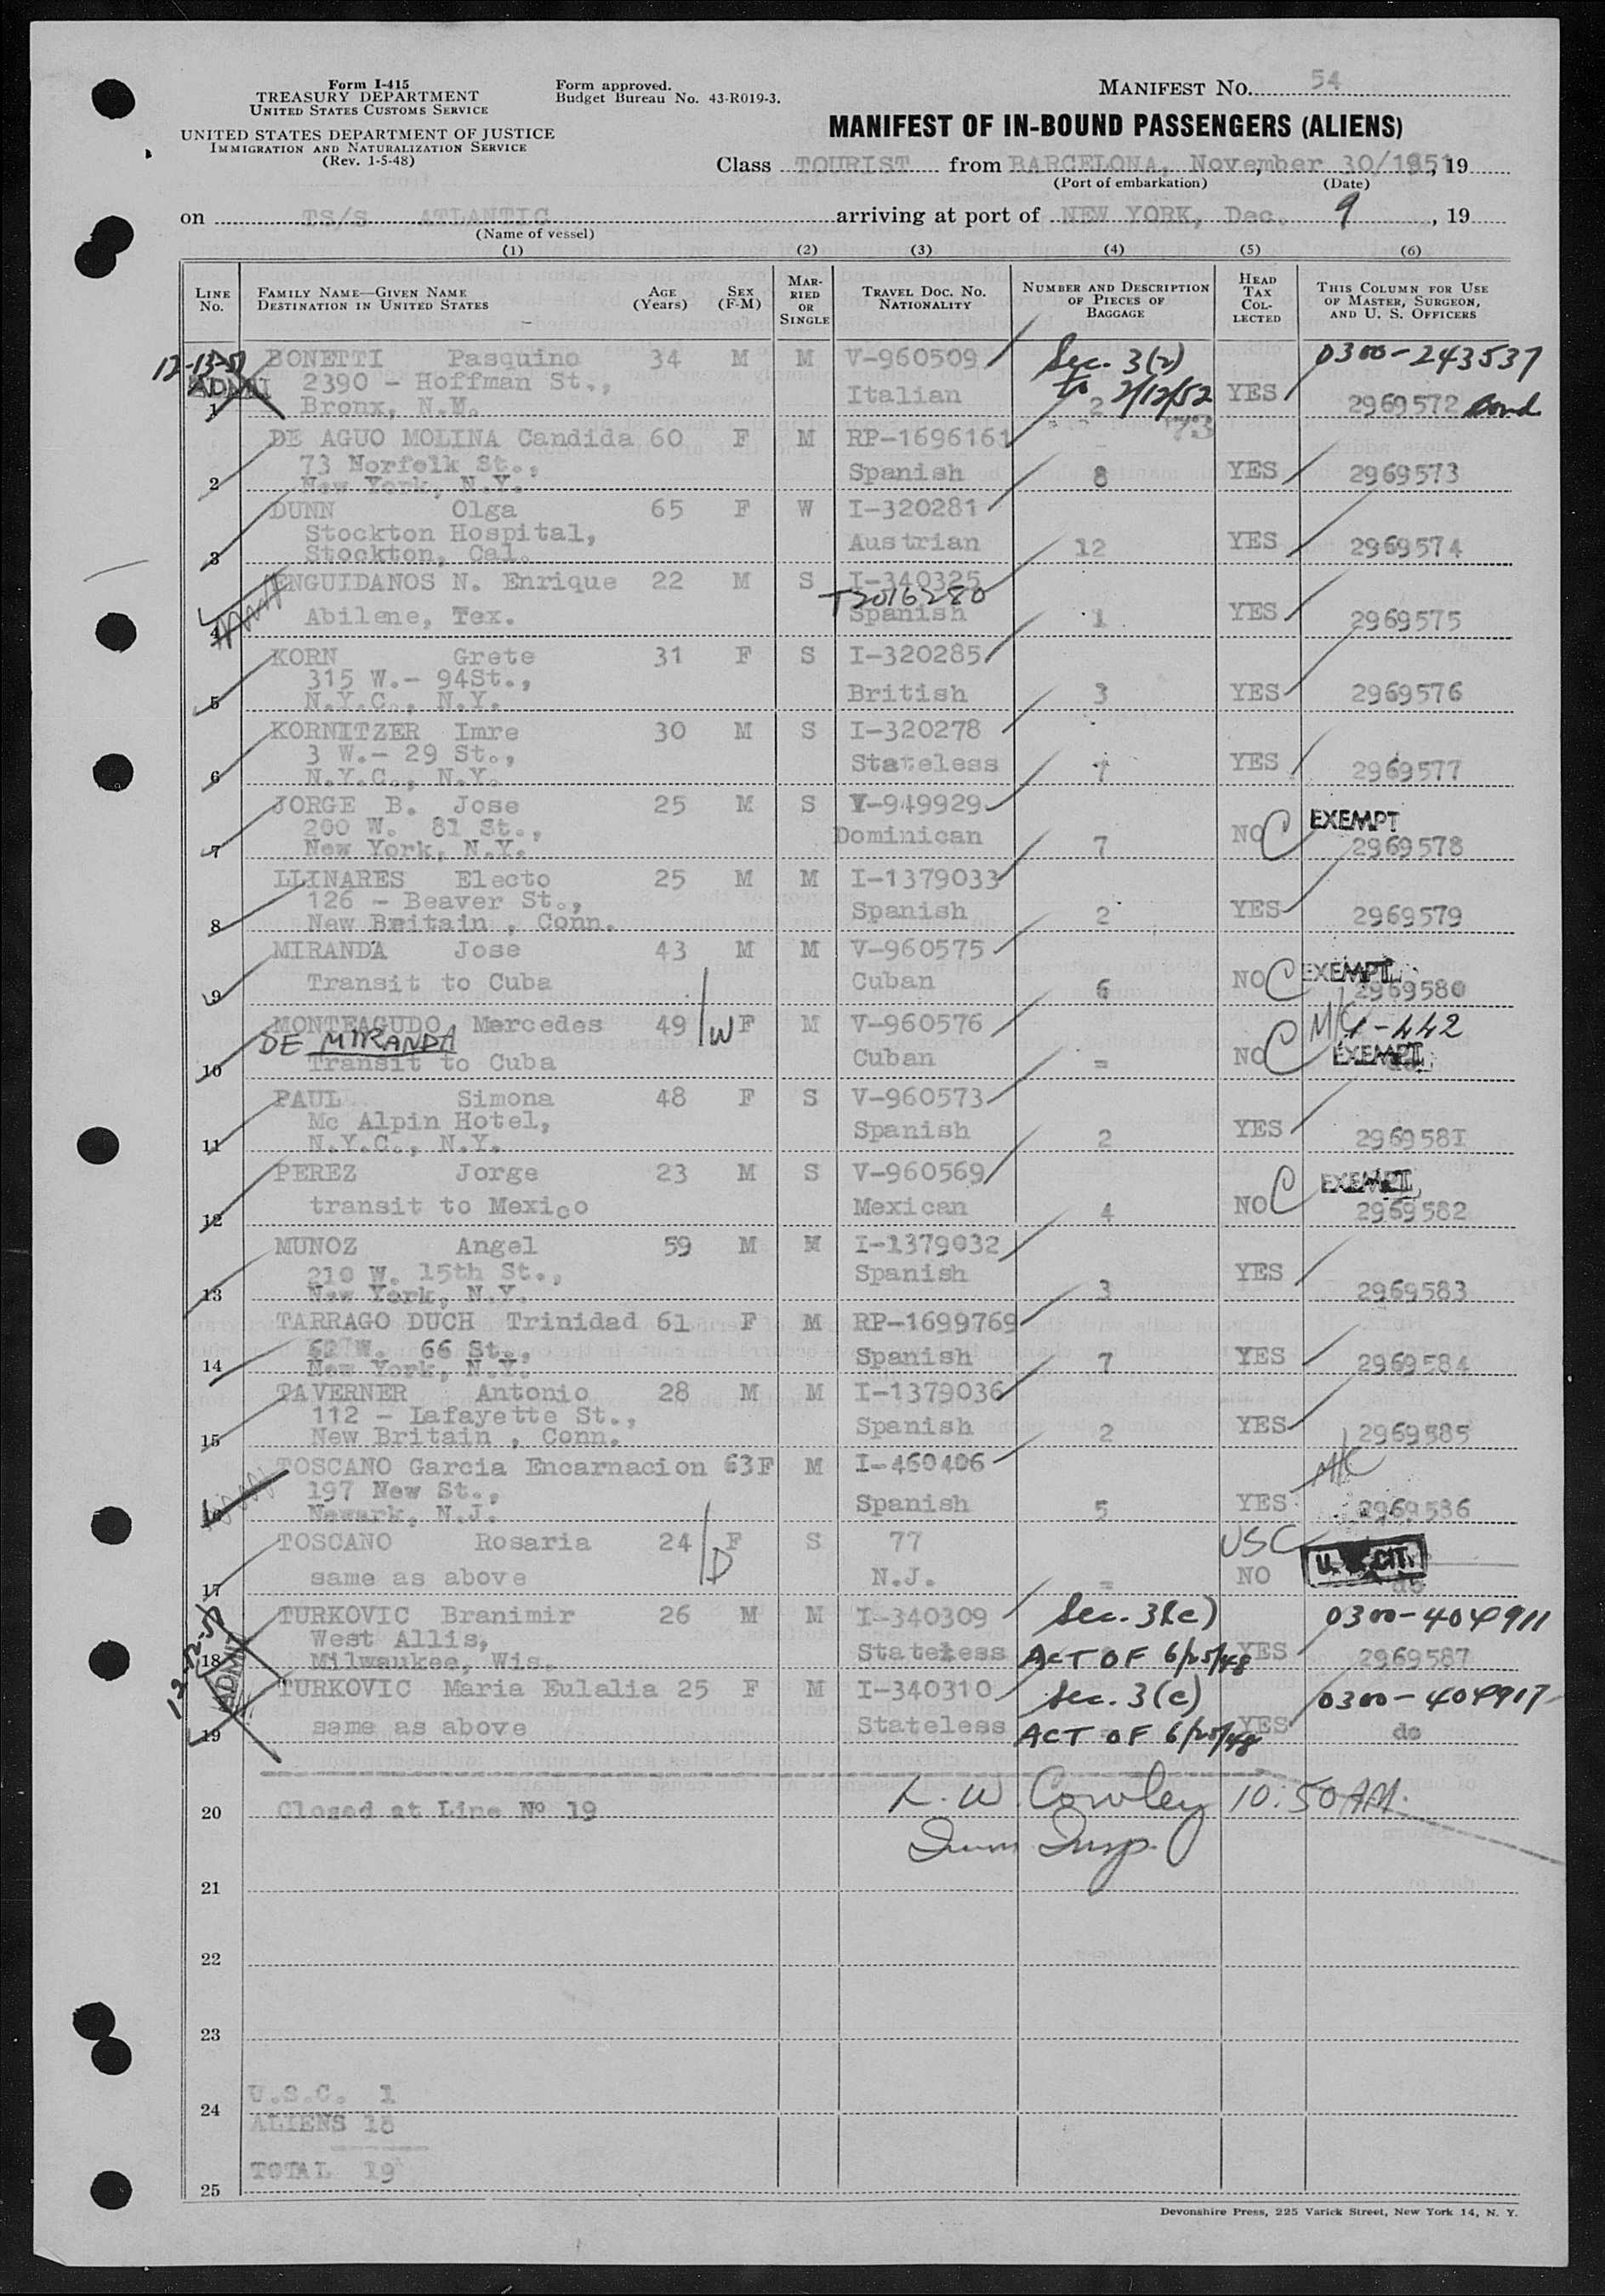 Form I-415
TREASURY DEPARTMENT
UNITED STATES CUSTOMS SERVICE
UNITED STATES DEPARTMENT OF JUSTICE
IMMIGRATION AND NATURALIZATION SERVICE
(Rev. 1-5-48)
Form approved.
Budget Bureau No. 43-R019-3.
MANIFEST NO. 54
MANIFEST OF IN-BOUND PASSENGERS (ALIENS)
Class TOURIST from BARCELONA, November 30/1951, 19
(Port of embarkation) (Date)
on TS/S ATLANTIC arriving at port of NEW YORK, Dec. 9, 19
(Name of vessel)
(1) (2) (3) (4) (5) (6)
LINE No. FAMILY NAME—GIVEN NAME DESTINATION IN UNITED STATES AGE (Years) SEX (F-M) MARRIED OR SINGLE TRAVEL DOC. NO. NATIONALITY NUMBER AND DESCRIPTION OF PIECES OF BAGGAGE HEAD TAX COLLECTED THIS COLUMN FOR USE OF MASTER, SURGEON, AND U. S. OFFICERS
12-13-51 BONETTI Pasquino 34 M M V-960509 Sec. 3(2) 0300-243537
ADMIT 2390 - Hoffman St., Italian to 2/12/52 YES
1 Bronx, N.Y. 2 2969572 Bond
DE AGUO MOLINA Candida 60 F M RP-1696161 73
73 Norfolk St., Spanish 8 YES 2969573
2 New York, N.Y.
DUNN Olga 65 F W I-320281
Stockton Hospital, Austrian 12 YES 2969574
3 Stockton, Cal.
ENGUIDANOS N. Enrique 22 M S I-340325
T2016280
4 Abilene, Tex. Spanish 1 YES 2969575
KORN Grete 31 F S I-320285
315 W.- 94St., British 3 YES 2969576
5 N.Y.C., N.Y.
KORNITZER Imre 30 M S I-320278
3 W.- 29 St., Stateless 7 YES 2969577
6 N.Y.C., N.Y.
JORGE B. Jose 25 M S V-949929 EXEMPT
200 W. 81 St., Dominican 7 NO C 2969578
7 New York, N.Y.
LLINARES Electo 25 M M I-1379033
126 - Beaver St., Spanish 2 YES 2969579
8 New Britain , Conn.
MIRANDA Jose 43 M M V-960575
9 Transit to Cuba Cuban 6 NO C EXEMPT 2969580
MONTEAGUDO Mercedes 49 /W F M V-960576 1-442
DE MIRANDA
10 Transit to Cuba Cuban = NO C EXEMPT
PAUL Simona 48 F S V-960573
Mc Alpin Hotel, Spanish 2 YES 2969581
11 N.Y.C., N.Y.
PEREZ Jorge 23 M S V-960569 EXEMPT
12 transit to Mexico Mexican 4 NO C 2969582
MUNOZ Angel 59 M M I-1379032
210 W. 15th St., Spanish 3 YES 2969583
13 New York, N.Y.
TARRAGO DUCH Trinidad 61 F M RP-1699769
W. 66 St., Spanish 7 YES 2969584
14 New York, N.Y.
TAVERNER Antonio 28 M M I-1379036
112 - Lafayette St., Spanish 2 YES 2969585
15 New Britain , Conn.
TOSCANO Garcia Encarnacion 63F M I-460406
197 New St., Spanish 5 YES 2969586
16 Newark, N.J.
TOSCANO Rosaria 24 /D F S 77 USC
17 same as above N.J. = NO U. S. CIT. do
TURKOVIC Branimir 26 M M I-340309 Sec. 3(c) 0300-404911
West Allis, Stateless ACT OF 6/25/48 YES 2969587
18 Milwaukee, Wis.
ADMIT
TURKOVIC Maria Eulalia 25 F M I-340310 Sec. 3(c) 0300-404917
19 same as above Stateless ACT OF 6/25/48 YES do
20 Closed at Line Nº 19 L. W. Cowley 10:50 AM.
Imm Insp.
21
22
23
U.S.C. 1
24
ALIENS 18
TOTAL 19
25
Devonshire Press, 225 Varick Street, New York 14, N. Y.